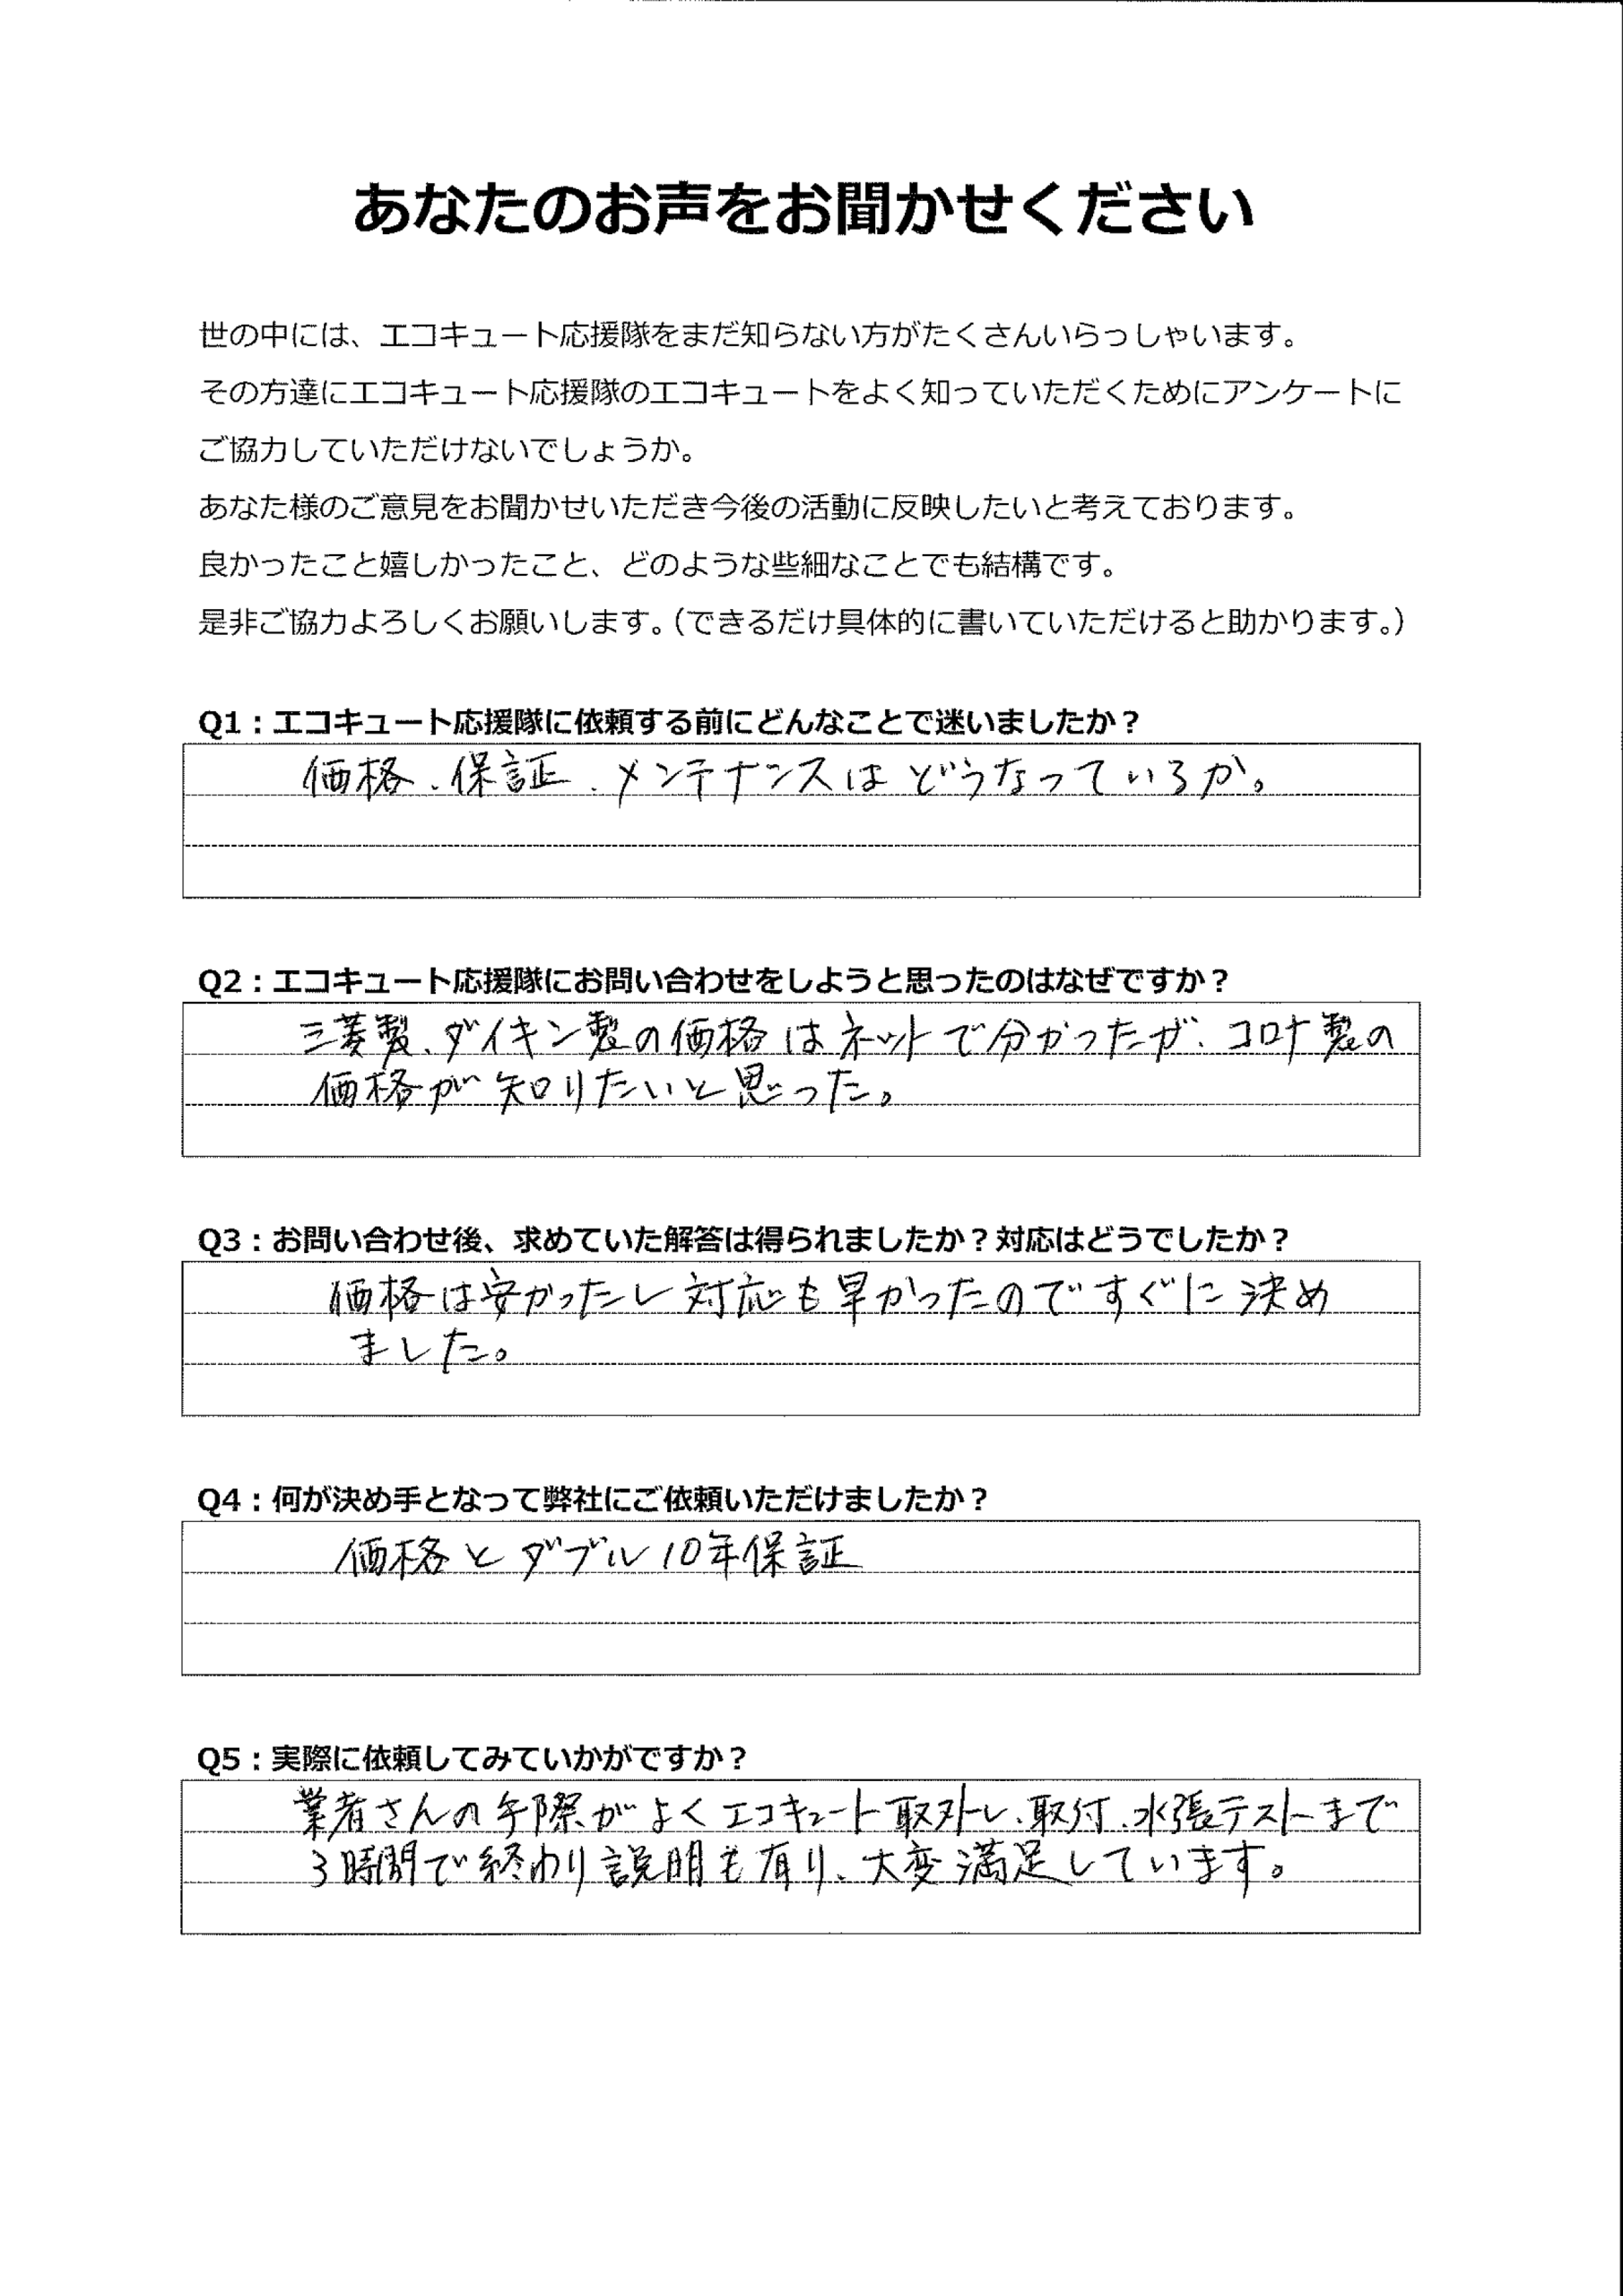 あなたのお声をお聞かせください
世の中には、エコキュート応援隊をまだ知らない方がたくさんいらっしゃいます。
その方達にエコキュート応援隊のエコキュートをよく知っていただくためにアンケートに
ご協力していただけないでしょうか。
あなた様のご意見をお聞かせいただき今後の活動に反映したいと考えております。
良かったこと嬉しかったこと、どのような些細なことでも結構です。
是非ご協力よろしくお願いします。（できるだけ具体的に書いていただけると助かります。）
Q1：エコキュート応援隊に依頼する前にどんなことで迷いましたか？
価格、保証、メンテナンスはどうなっているか。
Q2：エコキュート応援隊にお問い合わせをしようと思ったのはなぜですか？
三菱製、ダイキン製の価格はネットで分かったが、コロナ製の
価格が知りたいと思った。
Q3：お問い合わせ後、求めていた解答は得られましたか？対応はどうでしたか？
価格は安かったし対応も早かったのですぐに決め
ました。
Q4：何が決め手となって弊社にご依頼いただけましたか？
価格とダブル10年保証
Q5：実際に依頼してみていかがですか？
業者さんの手際がよくエコキュート取外し、取付、水張テストまで
3時間で終わり説明も有り、大変満足しています。